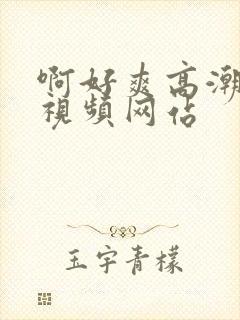 啊好爽高潮
視頻网佔
玉宇青檬